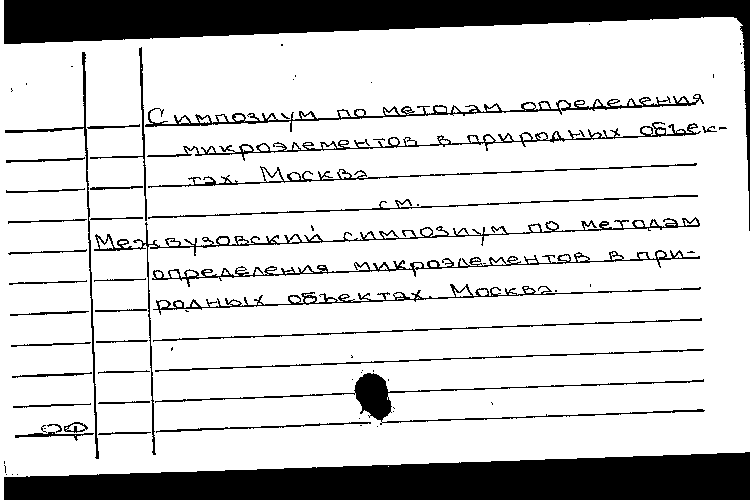 Симпозиум по методам определения
микроэлементов в природных объек-
тах. Москва
см.
Межвузовский симпозиум по методам
определения микроэлементов в при-
родных объектах. Москва.
ОФ